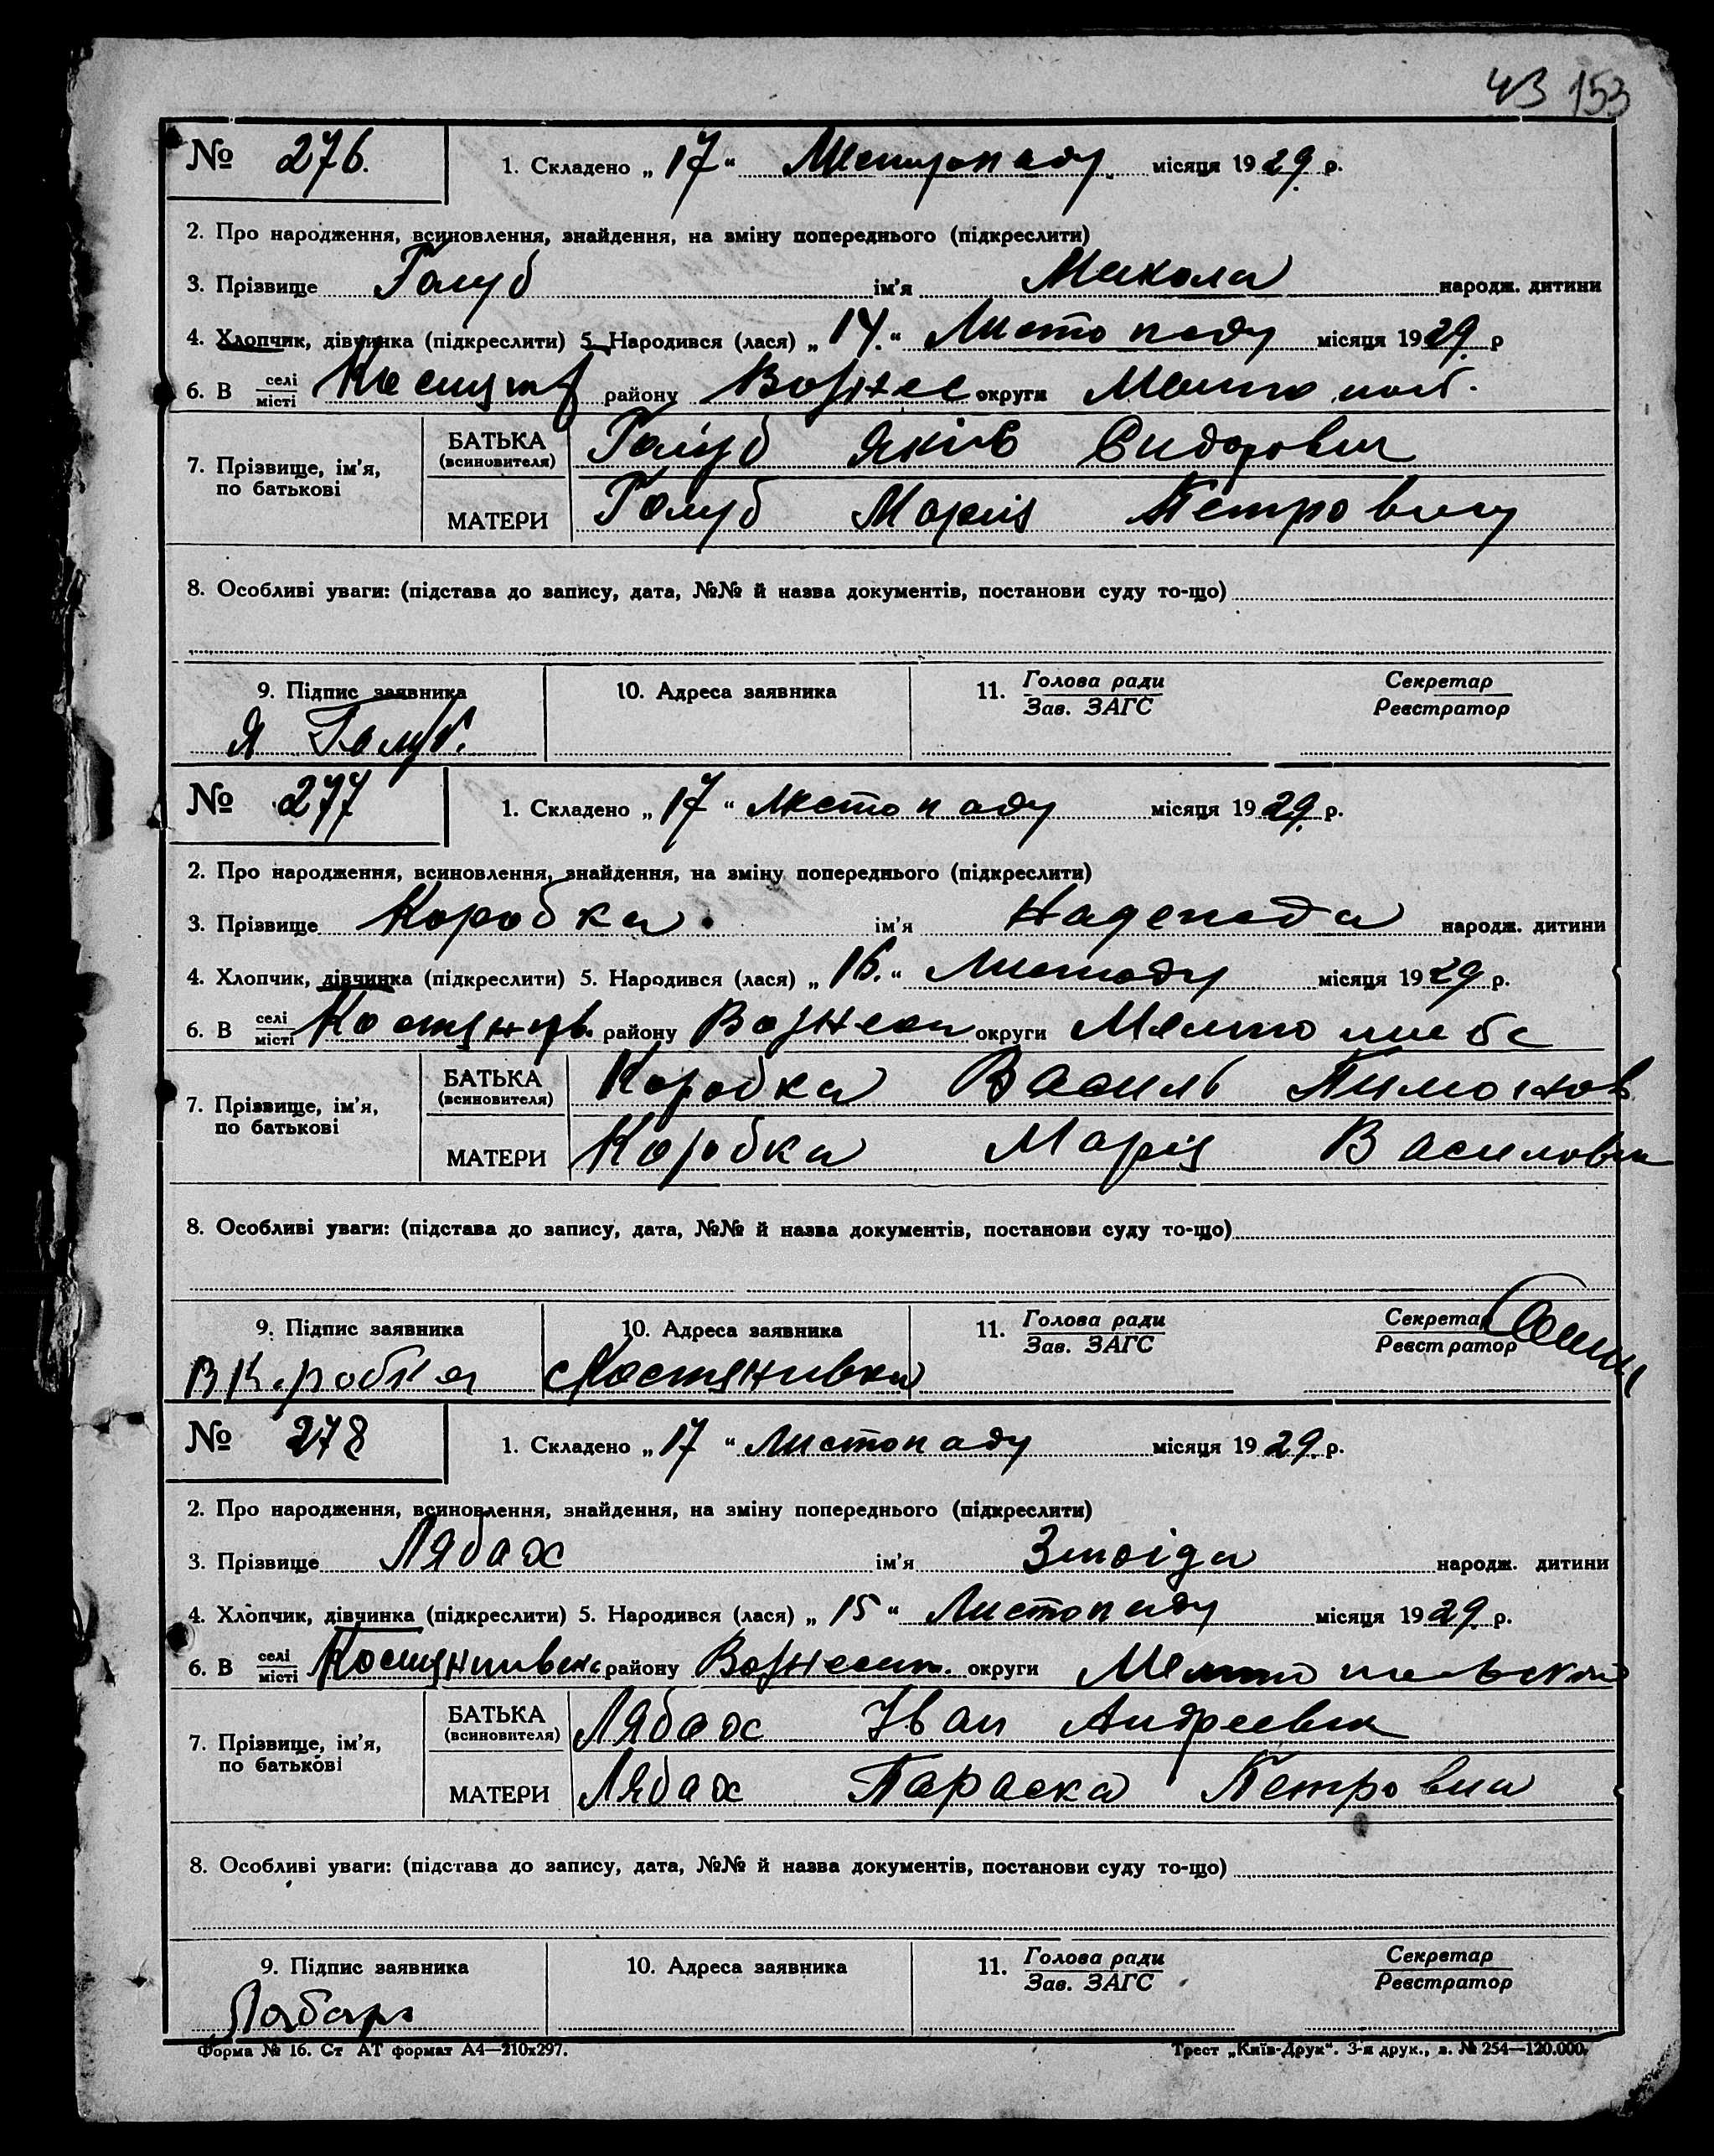 43 153
№ 276. 1. Складено „17“ Листопаду місяця 1929. р.
2. Про народження, всиновлення, знайдення, на зміну попереднього (підкреслити)
3. Прізвище Голуб ім'я Микола народж. дитини
4. Хлопчик, дівчинка (підкреслити) 5. Народився (лася) „14.“ Листопаду місяця 1929. р
6. В селі місті району Вознес округи
7. Прізвище, ім'я, по батькові БАТЬКА (всиновителя) Голуб Яків Сидорович
МАТЕРИ Голуб Марія Петровну
8. Особливі уваги: (підстава до запису, дата, №№ й назва документів, постанови суду то-що)
9. Підпис заявника 10. Адреса заявника 11. Голова ради Зав. ЗАГС Секретар Реєстратор
Я Голуб.
№ 277 1. Складено „17“ Листопаду місяця 1929. р.
2. Про народження, всиновлення, знайдення, на зміну попереднього (підкреслити)
3. Прізвище Коробка ім'я народж. дитини
4. Хлопчик, дівчинка (підкреслити) 5. Народився (лася) „16.“ місяця 1929 р.
6. В селі місті району округи
7. Прізвище, ім'я, по батькові БАТЬКА (всиновителя) Коробка Василь Тимофіов
МАТЕРИ Коробка Марія
8. Особливі уваги: (підстава до запису, дата, №№ й назва документів, постанови суду то-що)
9. Підпис заявника 10. Адреса заявника 11. Голова ради Зав. ЗАГС Секретар Реєстратор
В Коробка с Костянивка
№ 278 1. Складено „17“ Листопаду місяця 1929. р.
2. Про народження, всиновлення, знайдення, на зміну попереднього (підкреслити)
3. Прізвище Лябах ім'я народж. дитини
4. Хлопчик, дівчинка (підкреслити) 5. Народився (лася) „15“ Листопаду місяця 1929. р.
6. В селі місті району округи
7. Прізвище, ім'я, по батькові БАТЬКА (всиновителя) Лябах Іван Андреевич
МАТЕРИ Лябах Параска Петровна
8. Особливі уваги: (підстава до запису, дата, №№ й назва документів, постанови суду то-що)
9. Підпис заявника 10. Адреса заявника 11. Голова ради Зав. ЗАГС Секретар Реєстратор
Форма № 16. Ст АТ формат А4—210x297. Трест „Київ-Друк“. 3-я друк., з. № 254—120.000.